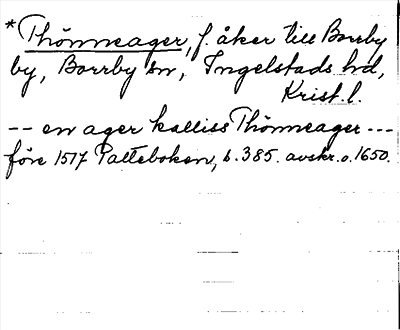 *Thönneager, f. åker till Borrby
by, Borrby sn, Ingelstads hd,
Krist. l.
-- en ager kalliss Thönneager ---
före 1517 Palteboken, s. 385. avskr. o. 1650.